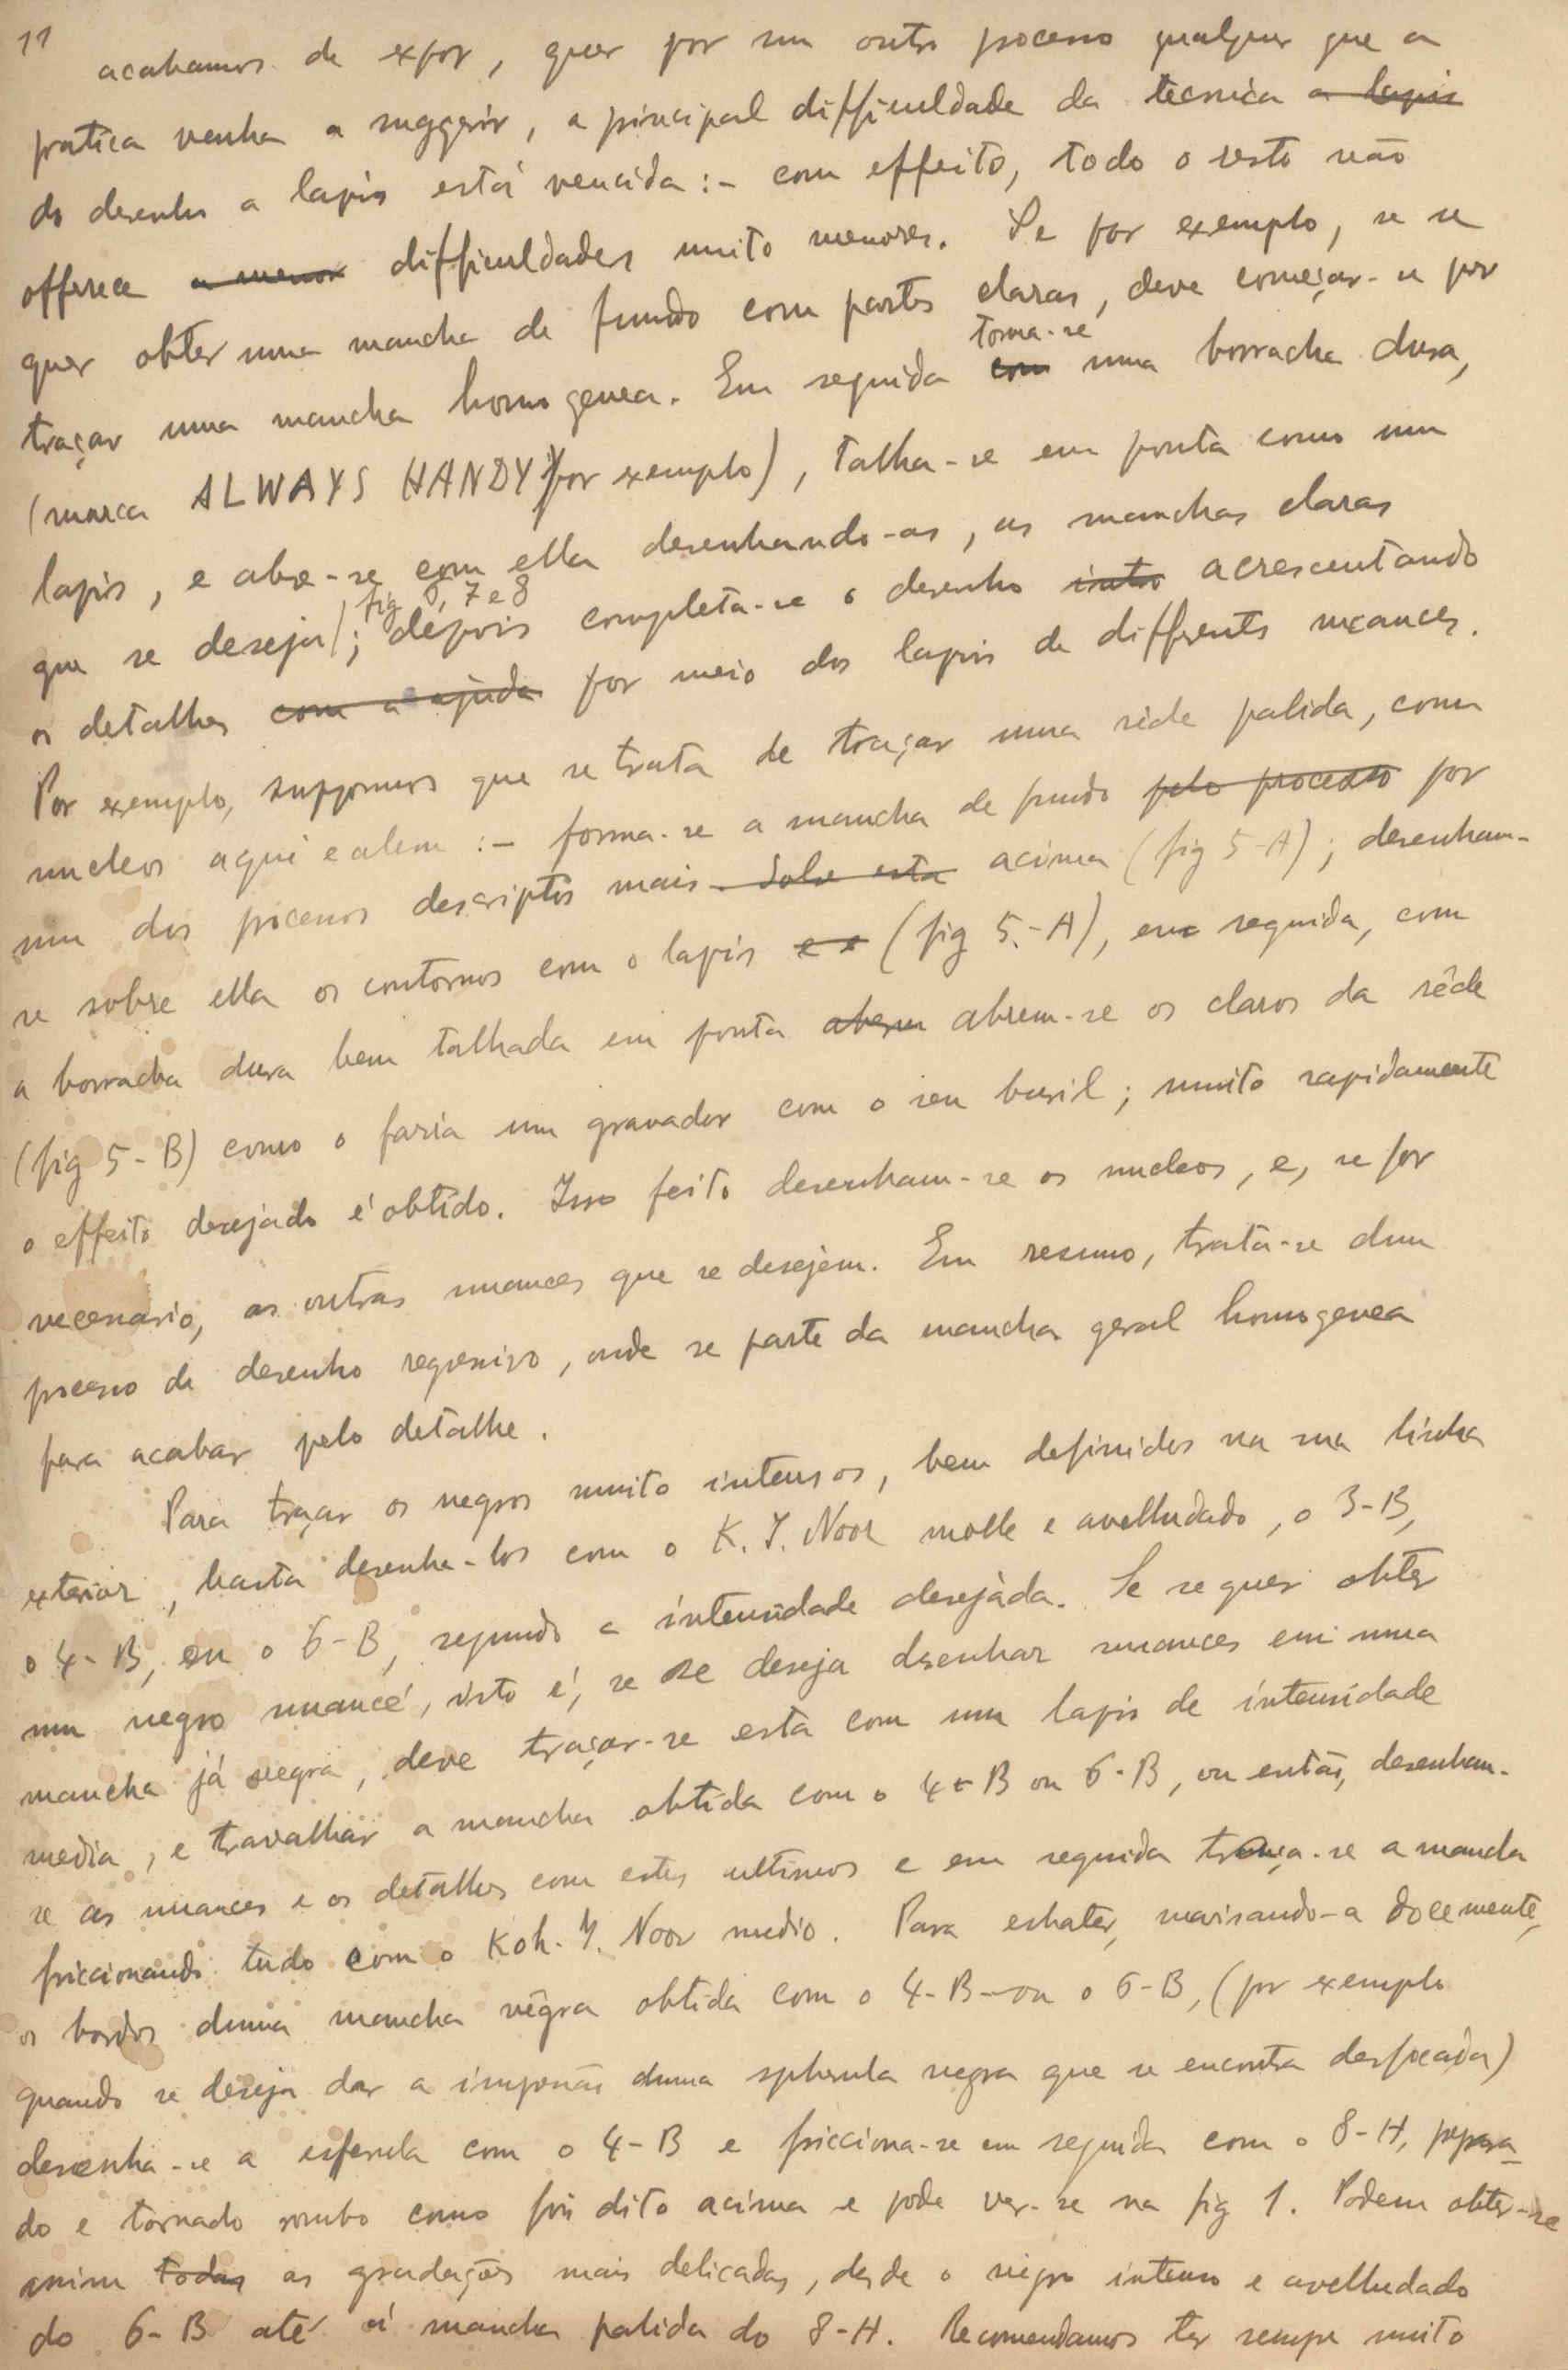 11
acabamos de expor, quer por um outro processo qualquer que a
pratica venha a suggerir, a principal difficuldade da tecnica a lapis
do desenho a lapis está vencida :- com effeito, todo o resto não
offerece a menor difficuldades muito menores. Se por exemplo, se se
quer obter uma mancha de fundo com partes claras, deve começar-se por
traçar uma mancha homogenea. Em seguida com torna-se uma borracha dura,
(marca ALWAYS HANDY por exemplo), talha-se em ponta como um
lapis, e abre-se com ella desenhando-as, as manchas claras
que se deseja fig 6, 7 e 8; depois completa-se o desenho acrescentando
os detalhes com a ajuda por meio dos lapis de differents nuances.
Por exemplo, supponmos que se trata de traçar uma rêde palida, com
nucleos aqui e alem :- forma-se a mancha de fundo pelo processo por
um dos processos descriptos mais acima (fig 5-A); desenham-
se sobre ella os contornos com o lapis (fig 5.-A), em seguida, com
a borracha dura bem talhada em ponta abrem abrem-se os claros da rêde
(fig 5-B) como o faria um gravador com o seu buril; muito rapidamente
o effeito desejado é obtido. Isso feito desenham-se os nucleos, e, se for
necessario, as outras nuances que se desejem. Em resumo, trata-se dum
processo de desenho regressivo, onde se parte da mancha geral homogenea
para acabar pelo detalhe.
Para traçar os negros muito intensos, bem definidos na sua linha
exterior, basta desenha-los com o K. I. Noor molle e avelludado, o 3-B,
o 4-B, ou o 6-B, segundo a intensidade desejada. Se se quer obter
um negro nuancé, isto é, se se deseja desenhar nuances em uma
mancha já negra, deve traçar-se esta com um lapis de intensidade
media, e travalhar a mancha obtida com o 4-B ou 6-B, ou então, desenham-
se as nuances e os detalhes com estes ultimos e em seguida traça-se a mancha
friccionando tudo com o Koh. I. Noor medio. Para esbater, docemente,
os bordos duma mancha nêgra obtida com o 4-B-ou o 6-B, (por exemplo
quando se deseja dar a impressão duma spherula negra que se encontra desfocada)
desenha-se a esferula com o 4-B e fricciona-se em seguida com o 8-H, prepara-
do e tornado rombo como foi dito acima e pode ver-se na fig 1. Podem obter-se
assim todas as gradações mais delicadas, desde o negro intenso e avelludado
do 6-B até á mancha palida do 8-H. Recomendamos ter sempre muito